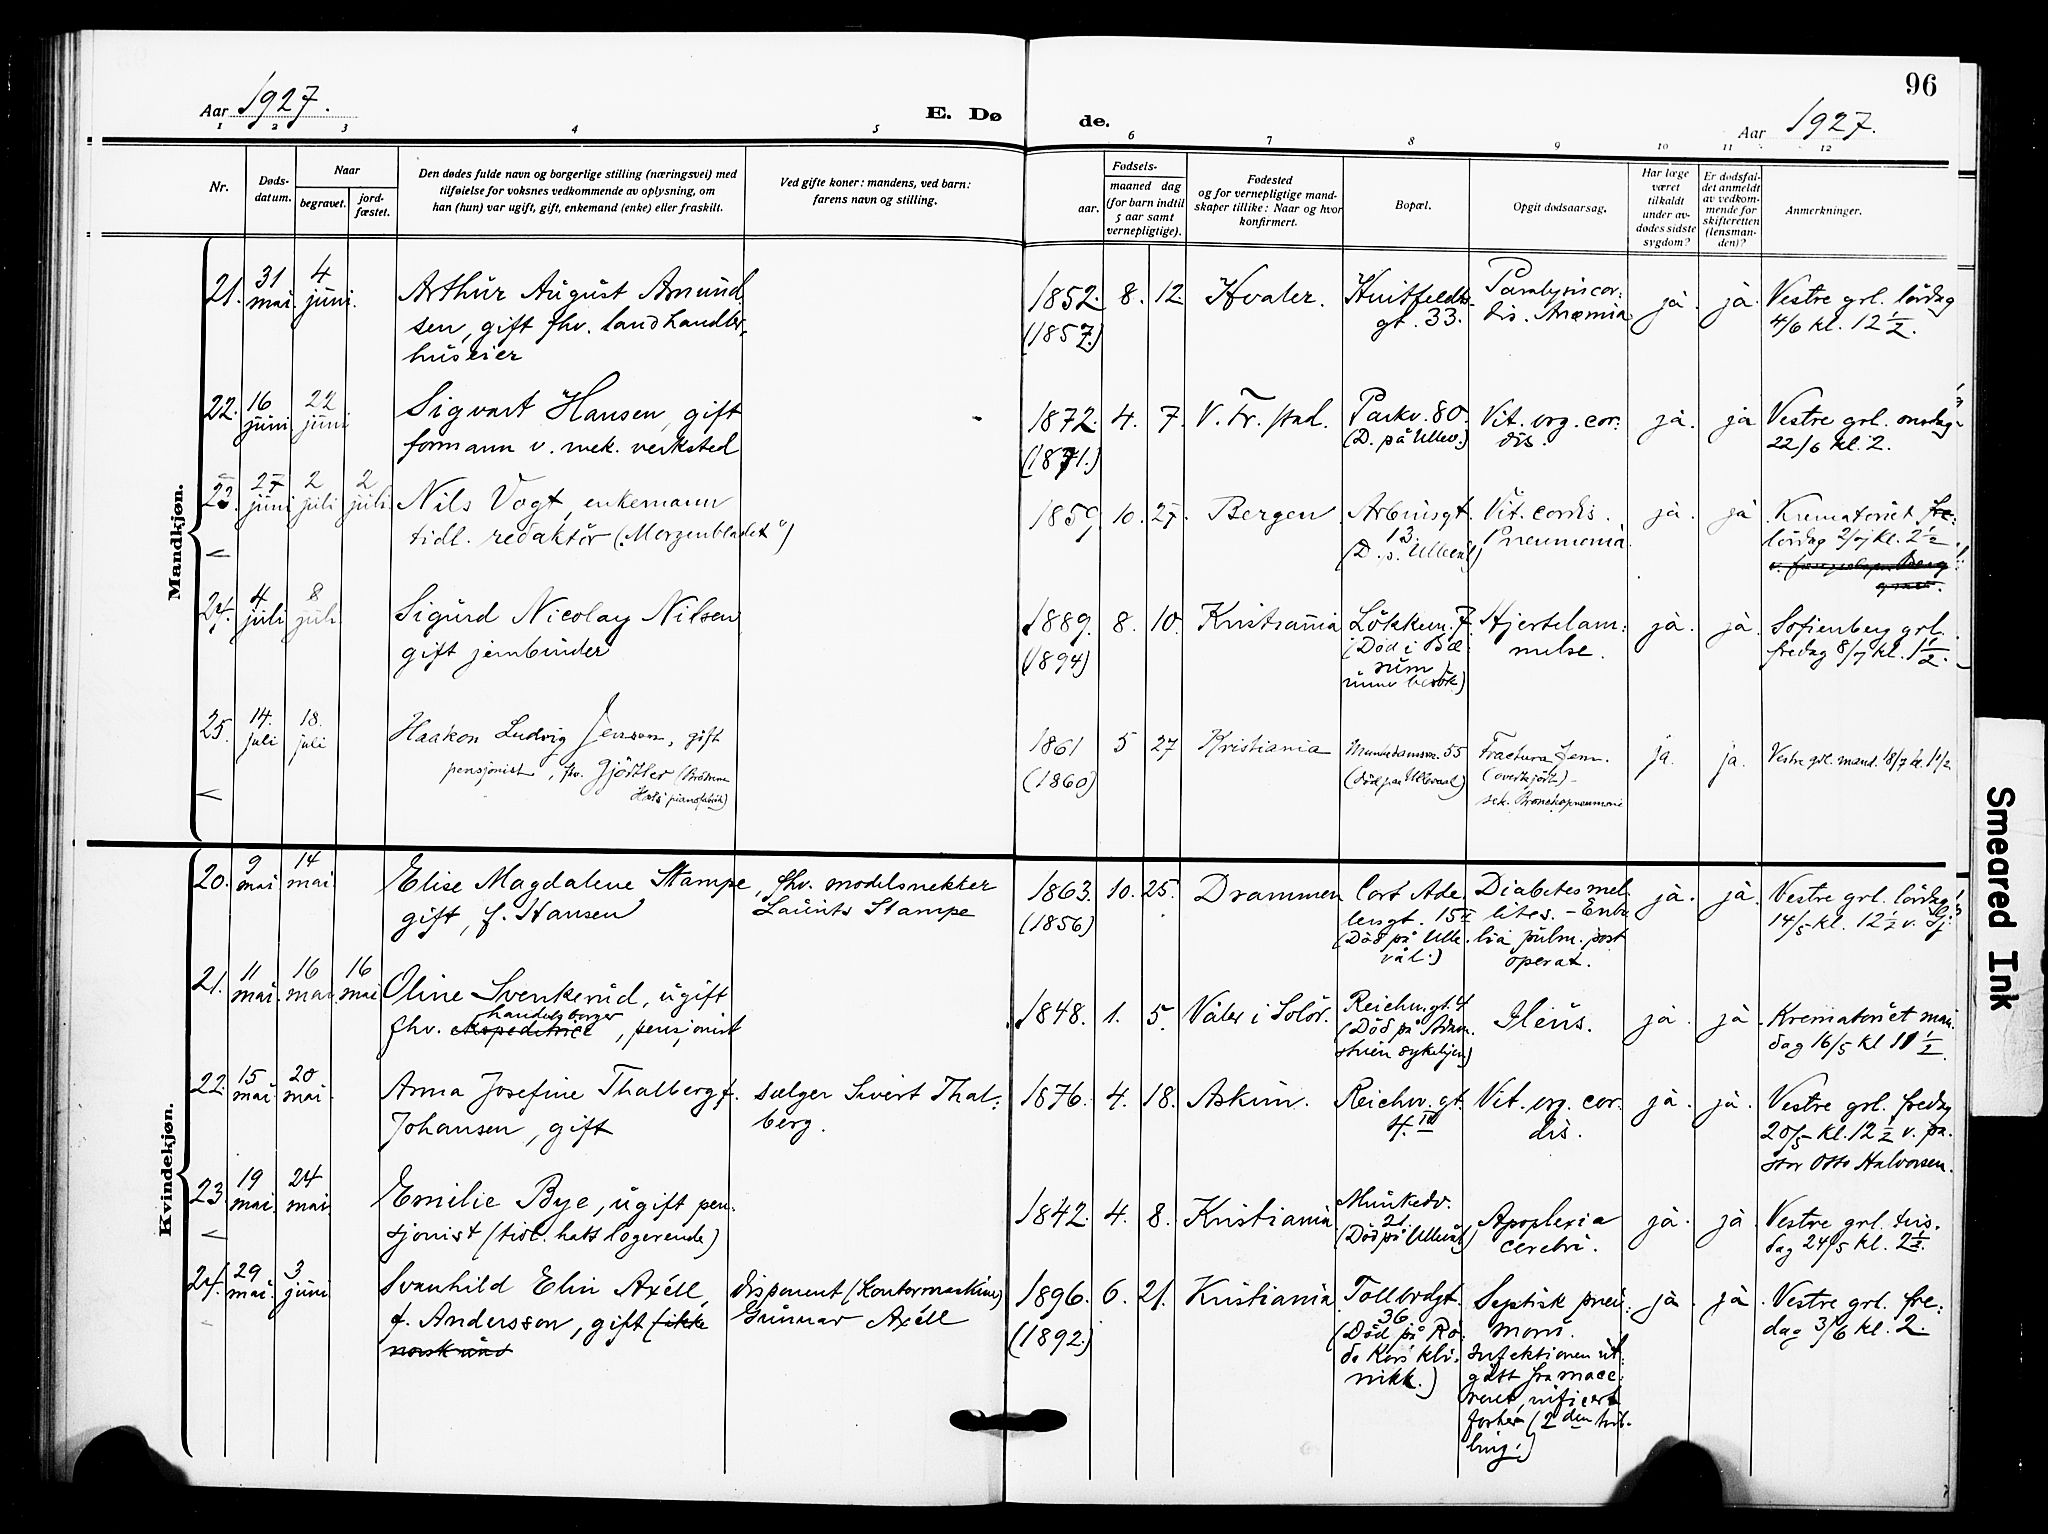 96
Aar 1927.
E. Døde.
Aar 1927.
1 2 3 4 5 6 7 8 9 10 11 12
Nr.
Døds-
datum.
Naar
begravet.
jord-
fæstet.
Den dødes fulde navn og borgerlige stilling (næringsvei) med
tilføielse for voksnes vedkommende av oplysning, om
han (hun) var ugift, gift, enkemand (enke) eller fraskilt.
Ved gifte koner: mandens, ved barn:
farens navn og stilling.
Fødsels-
aar.
maaned dag
(for barn indtil
5 aar samt
vernepligtige).
Fødested
og for vernepligtige mand-
skaper tillike: Naar og hvor
konfirmert.
Bopæl.
Opgit dødsaarsag.
Har læge
været
tilkaldt
under av-
dødes sidste
sygdom?
Er dødsfal-
det anmeldt
av vedkom-
mende for
skifteretten
(lensman-
den)?
Anmerkninger.
Mandkjøn.
21.
31
mai.
4
juni.
Arthur August Amund
sen, gift fhv. landhandler,
huseier
1852.
(1857.)
8. 12.
Hvaler.
Huitfeldts-
gt. 33.
cor:
dis. Anæmia
ja. ja.
Vestre grl. lördag
4/6 kl. 12 1/2.
22.
16
juni
22
juni
Sigvart Hansen, gift
formann v. mek. verksted
1872.
(1871.)
4. 7.
V. Fr. stad.
Parkv. 80.
(D. på Ullev.)
Vit. org. cor:
dis.
ja. ja
Vestre grl. onsdag
22/6 kl. 2.
23.
27
juni
2
juli
2
juli.
Nils Vogt, enkemann
tidl. redaktör („Morgenbladet")
1859. 10. 27.
Bergen
Arbinsgt.
13.
(D. p. Ullevål)
Vit. cordis.
Pneumonia.
ja. ja
Krematoriet fre:
lördag 2/7 kl. 2 1/2
24.
4
juli
8
juli.
Sigurd Nicolay Nilsen
gift jernbinder
1889.
(1894)
8. 10.
Kristiania
Lökkenv. 7.
(Död i Bæ
rum
under besök)
Hjertelam:
melse.
ja. ja.
Sofienberg grl.
fredag 8/7 kl. 1 1/2.
25.
14.
juli
18.
juli
Haakon Ludvig Jensen, gift
pensjonist, fhv. Gjörtler (Brödrene
Hals' pianofabrik)
1861
(1860)
5 27
Kristiania
Munkedamsv. 55
(död paa Ullevaal)
Fractura fem.
(overkjört) –
sek. Bronchopneumoni
ja. ja.
Vestre grl. mand. 18/7 kl. 1 1/2
Kvindekjøn.
20.
9
mai
14
mai.
Elise Magdalene Stampe,
gift, f. Hansen
fhv. modelsnekker
Laurits Stampe
1863.
(1856)
10. 25.
Drammen
Cort Ade
lersgt. 15 I
(Död på Ulle
vål.)
Diabetes mel
lites. – Embo
lia pulm. post
operat.
ja. ja.
Vestre grl. lördag
14/5 kl. 12 1/2 v. Sj.
21.
11
mai.
16
mai.
16
mai
Oline Svenkerud, ugift
handelsborger
fhv. ekspeditrice, pensjonist
1848. 1. 5.
Våler i Solör.
Reichw. gt. 4
(Död på
sykehjem)
Ileus.
ja. ja.
Krematoriet man
dag 16/5 kl 11 1/2.
22.
15
mai.
20
mai.
Anna Josefine Thalberg f.
Johansen, gift
selger Sivert Thal:
berg.
1876. 4. 18.
Askim.
Reichw. gt.
4.
Vit. org. cor
dis.
ja. ja.
Vestre grl. fredag
20/5 kl. 12 1/2 v. pa.
stor Otto Halvorsen.
23.
19
mai.
24
mai.
Emilie Bye, ugift pen.
sjonist (tidl. hatt )
1842. 4. 8.
Kristiania
Munkedv.
21.
(Död på Ullevål)
Apoplexia
cerebri.
ja. ja
Vestre grl. tirs.
dag 24/5 kl. 2 1/2.
24.
29
mai.
3
juni
Svanhild Elin Axéll,
f. Andersson, gift (ikke
disponent (Kontormaskiner)
Gunnar Axéll
1896.
(1892.)
6. 21.
Kristiania
Tollbodgt.
36.
(Död på Rö.
de Kors' kli.
nikk.)
Septisk pneu:
moni.
Infektionen ut:
gått fra mace:
reret
foster (2den tvil-
ling.)
ja. ja.
Vestre grl. fre:
dag 3/6 kl. 2.
Smeared Ink